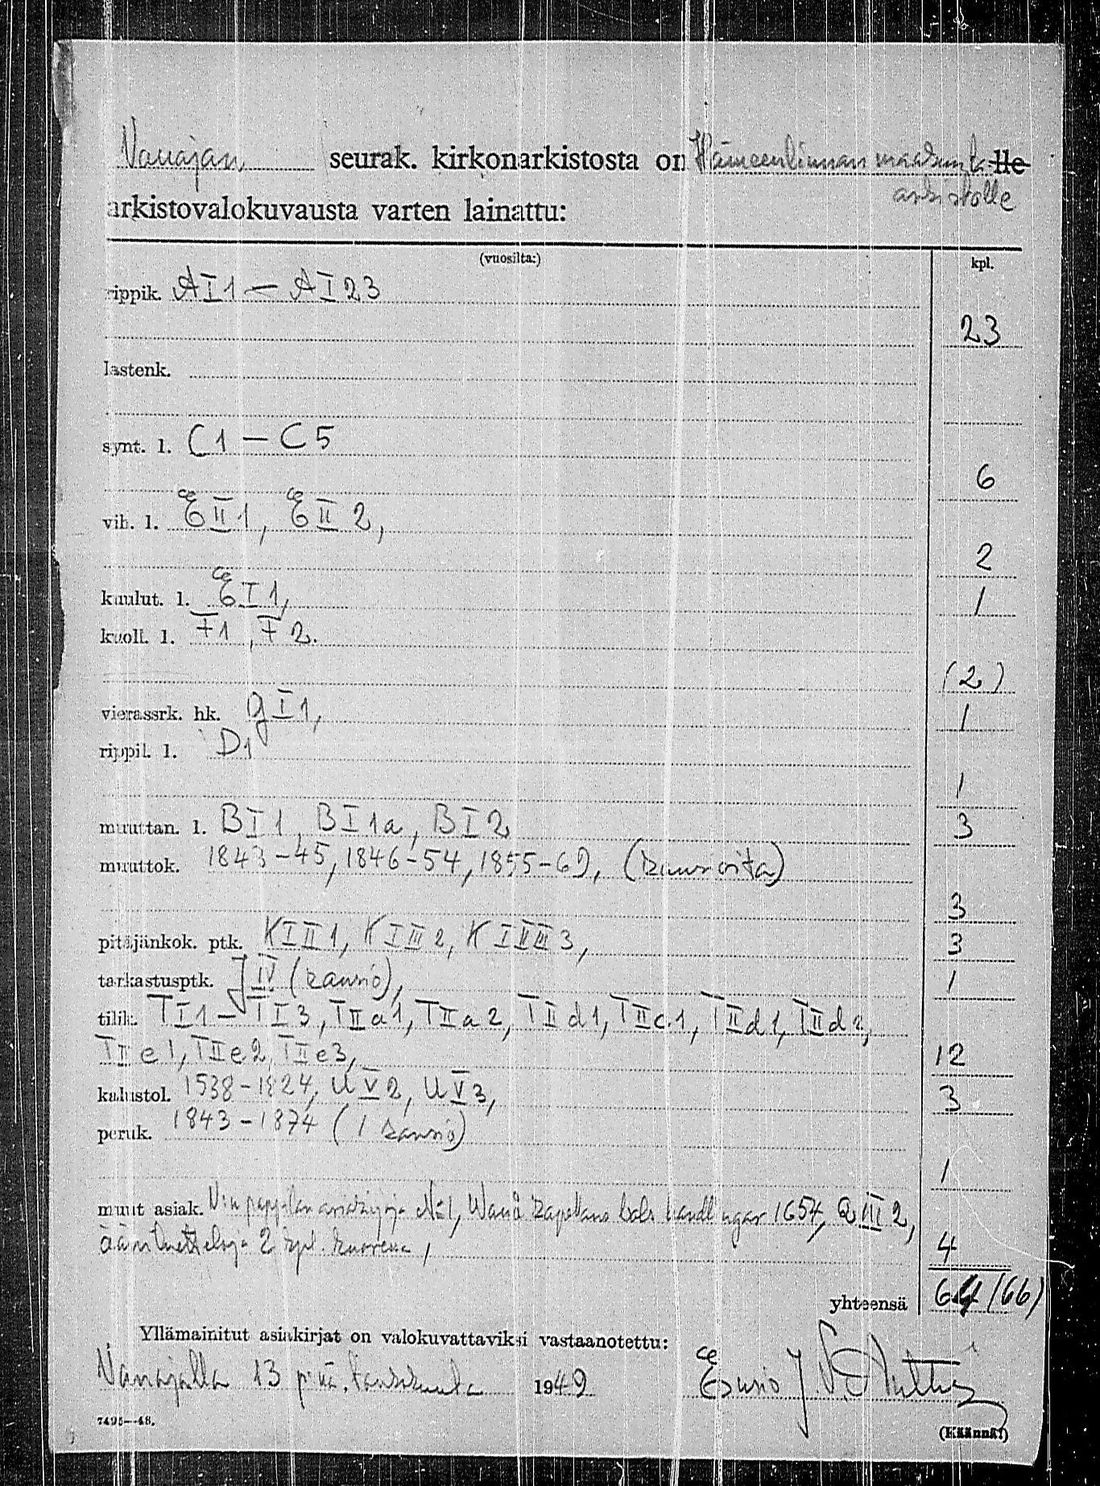 Vanajan seurak. kirkonarkistosta on Hämeenlinnan maakunta-lle
arkistolle
arkistovalokuvausta varten lainattu:
(vuosilta:) kpl.
rippik. AI1 — AI23
23
lastenk.
synt. l. C1 — C5
6
vih. l. EII1, EII2,
2
kuulut. l. EI1, 1
kuoll. l. F1, F2.
(2)
vierassrk. hk. gI1, 1
rippil. l. D1
1
muuttan. l. BI1, BI1a, BI2 3
muuttok. 1843-45, 1846-54, 1855-69, (kansioita)
3
pitäjänkok. ptk. KIII1, KIII2, KIII3, 3
tarkastusptk. JIV (kansio), 1
tilik. TI1 — TI3, TIIa1, TIIa2, TIId1, TIIc1, TIId1, TIId2,
TIIe1, TIIe2, TIIe3, 12
kalustol. 1538-1824, UV2, UV3, 3
peruk. 1843-1874 (1 kansio)
1
muut asiak. asiakirjoja N:o1, kapellans bols handlingar 1654, QIII2,
ääniluetteloja 2 kpl. kuoressa, 4
yhteensä 64 (66)
Yllämainitut asiakirjat on valokuvattaviksi vastaanotettu:
Vanajalla 13 p:nä. 1949 Eusio J.
7495—48.
(Käännä!)